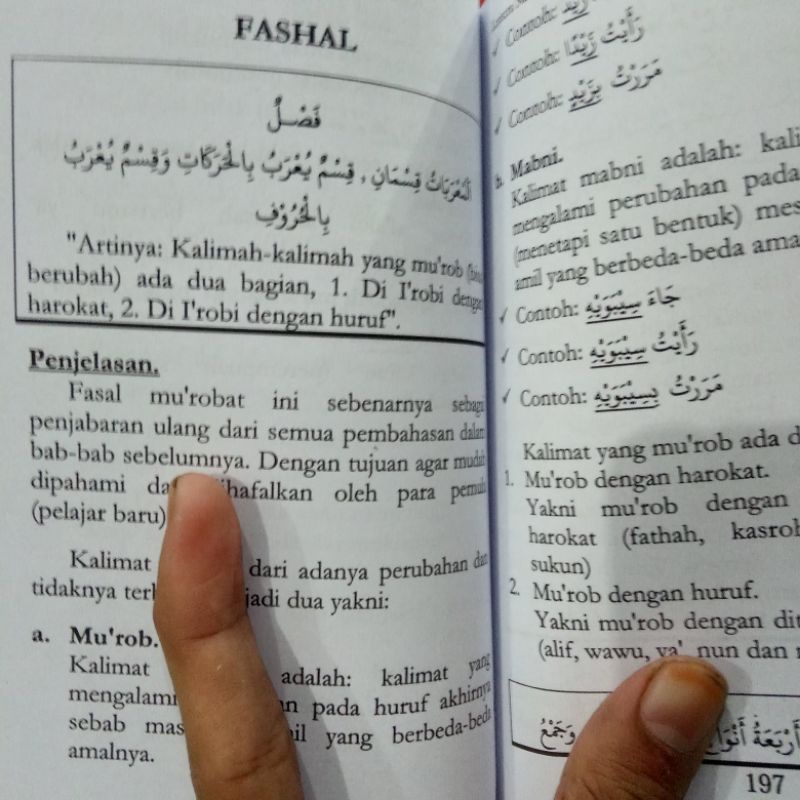 FASHAL
فَصْلٌ
اَلْمُعْرَبَاتُ قِسْمَانِ ، قِسْمٌ يُعْرَبُ بِالْحَرَكَاتِ وَقِسْمٌ يُعْرَبُ
بِالْحُرُوْفِ
"Artinya: Kalimah-kalimah yang mu'rob
berubah) ada dua bagian, 1. Di I'robi dengan
harokat, 2. Di I'robi dengan huruf".
Penjelasan.
Fasal mu'robat ini sebenarnya sebagai
penjabaran ulang dari semua pembahasan dalam
bab-bab sebelumnya. Dengan tujuan agar mudah
dipahami oleh para
(pelajar baru)
Kalimat dari adanya perubahan dan
tidaknya dua yakni:
a. Mu'rob.
Kalimat adalah: kalimat yang
pada huruf akhirnya
sebab yang berbeda-beda
amalnya.
Contoh: زَيْدٌ
Contoh: رَأَيْتُ زَيْدًا
Contoh: مَرَرْتُ بِزَيْدٍ
Mabni.
Kalimat mabni adalah:
mengalami perubahan pada
(menetapi satu bentuk)
amil yang berbeda-beda
Contoh: جَاءَ سِيْبَوَيْهِ
Contoh: رَأَيْتُ سِيْبَوَيْهِ
Contoh: مَرَرْتُ بِسِيْبَوَيْهِ
Kalimat yang mu'rob ada
1. Mu'rob dengan harokat.
Yakni mu'rob dengan
harokat (fathah,
sukun)
2. Mu'rob dengan huruf.
Yakni mu'rob dengan
(alif, wawu, ya' nun dan
أَرْبَعَةُ وَجَمْعُ
197